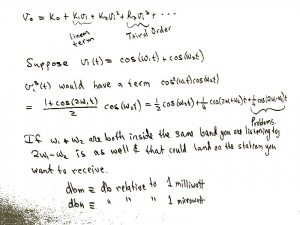 v₀ = K₀ + K₁vᵢ + K₂vᵢ² + K₃vᵢ³ + ...
linear term Third Order
Suppose vᵢ(t) = cos(ω₁t) + cos(ω₂t)
vᵢ³(t) would have a term cos²(ω₁t)cos(ω₂t)
= (1+cos(2ω₁t))/2 cos(ω₂t) = ½cos(ω₂t) + ¼cos(2ω₁+ω₂)t + ¼cos(2ω₁-ω₂)t
Problems.
If ω₁ & ω₂ are both inside the same band you are listening to
2ω₁-ω₂ is as well & that could land on the station you
want to receive.
dbm ≡ db relative to 1 milliwatt
dbμ ≡ " " " 1 microwatt